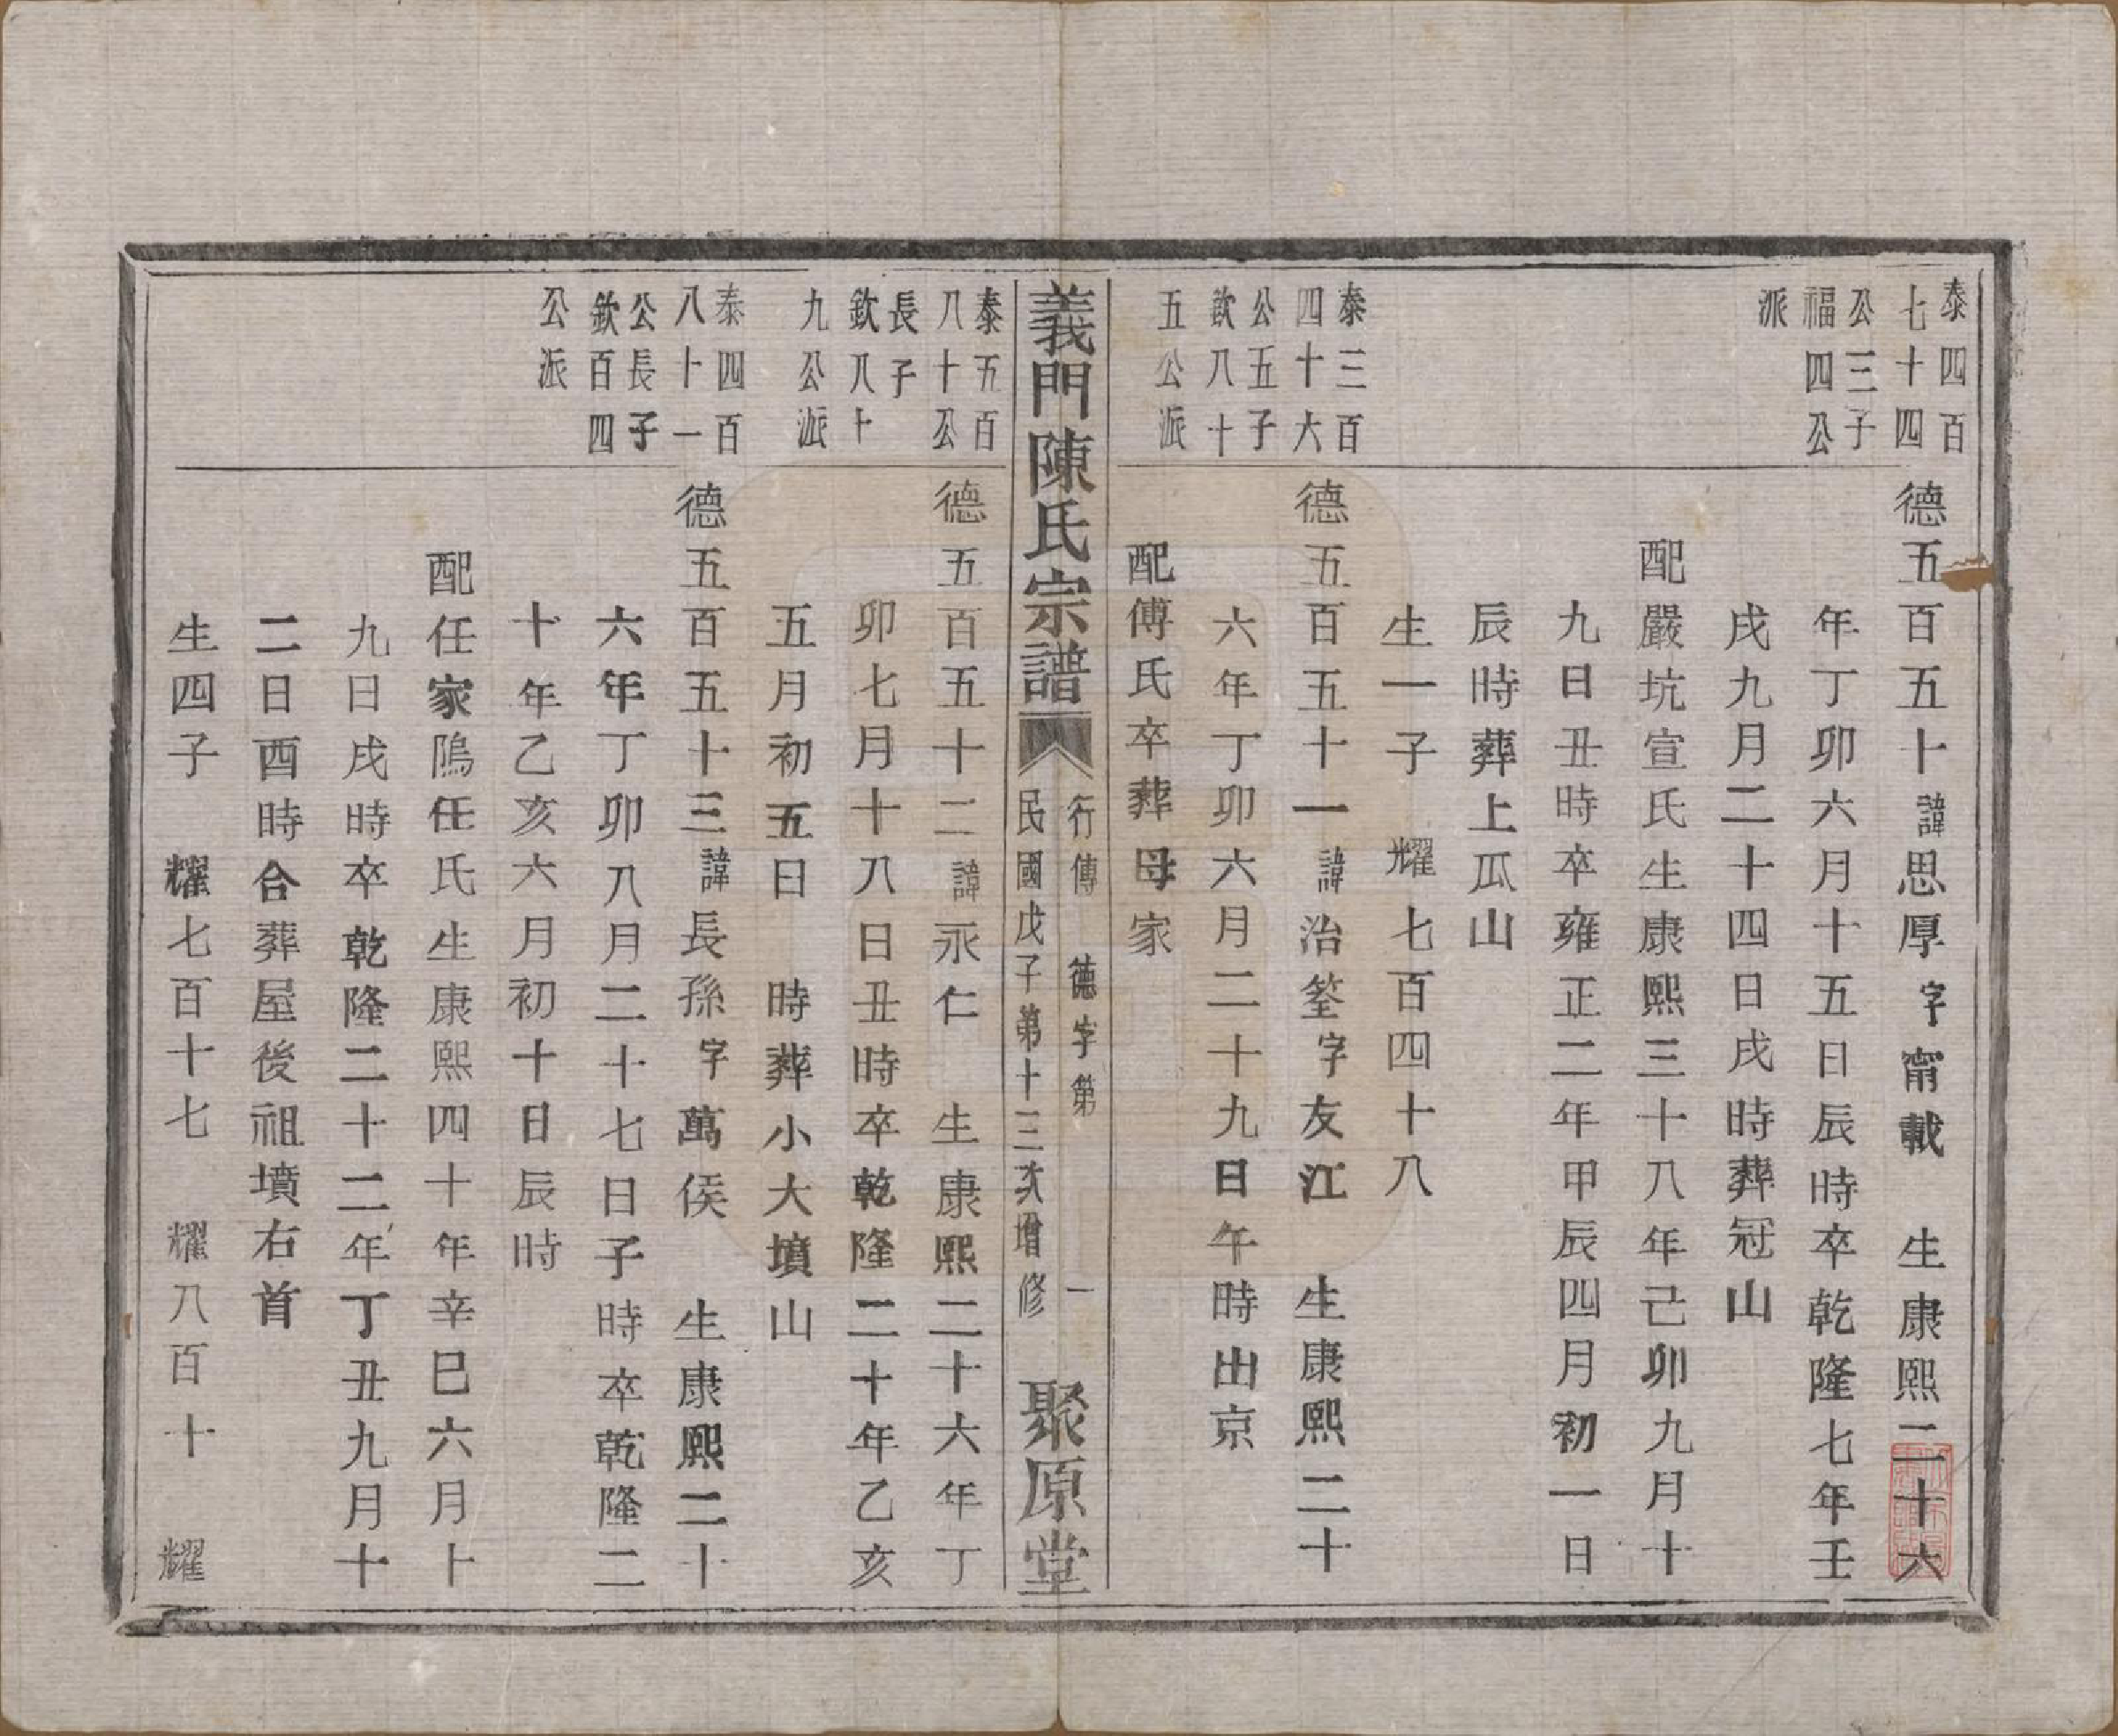 泰四百
七十四
公三子
福四公
派
德五百五十諱思厚字甯載　生康熙二十六
年丁卯六月十五日辰時卒乾隆七年壬
戌九月二十四日戌時葬冠山
配嚴坑宣氏生康熙三十八年己卯九月十
九日丑時卒雍正二年甲辰四月初一日
辰時葬上瓜山
生一子　耀七百四十八
泰三百
四十六
公五子
欽八十
五公派
德五百五十一諱治筌字友江　生康熙二十
六年丁卯六月二十九日午時出京
配傅氏卒葬母家
義門陳氏宗譜
行傳　德字第　一
民國戊子第十三次增修
聚原堂
泰五百
八十公
長子
欽八十
九公派
德五百五十二諱永仁　生康熙二十六年丁
卯七月十八日丑時卒乾隆二十年乙亥
五月初五日　時葬小大墳山
泰四百
八十一
公長子
欽百四
公派
德五百五十三諱長孫字萬侯　生康熙二十
六年丁卯八月二十七日子時卒乾隆二
十年乙亥六月初十日辰時
配任家隖任氏生康熙四十年辛巳六月十
九日戌時卒乾隆二十二年丁丑九月十
二日酉時合葬屋後祖墳右首
生四子　耀七百十七　耀八百十　耀